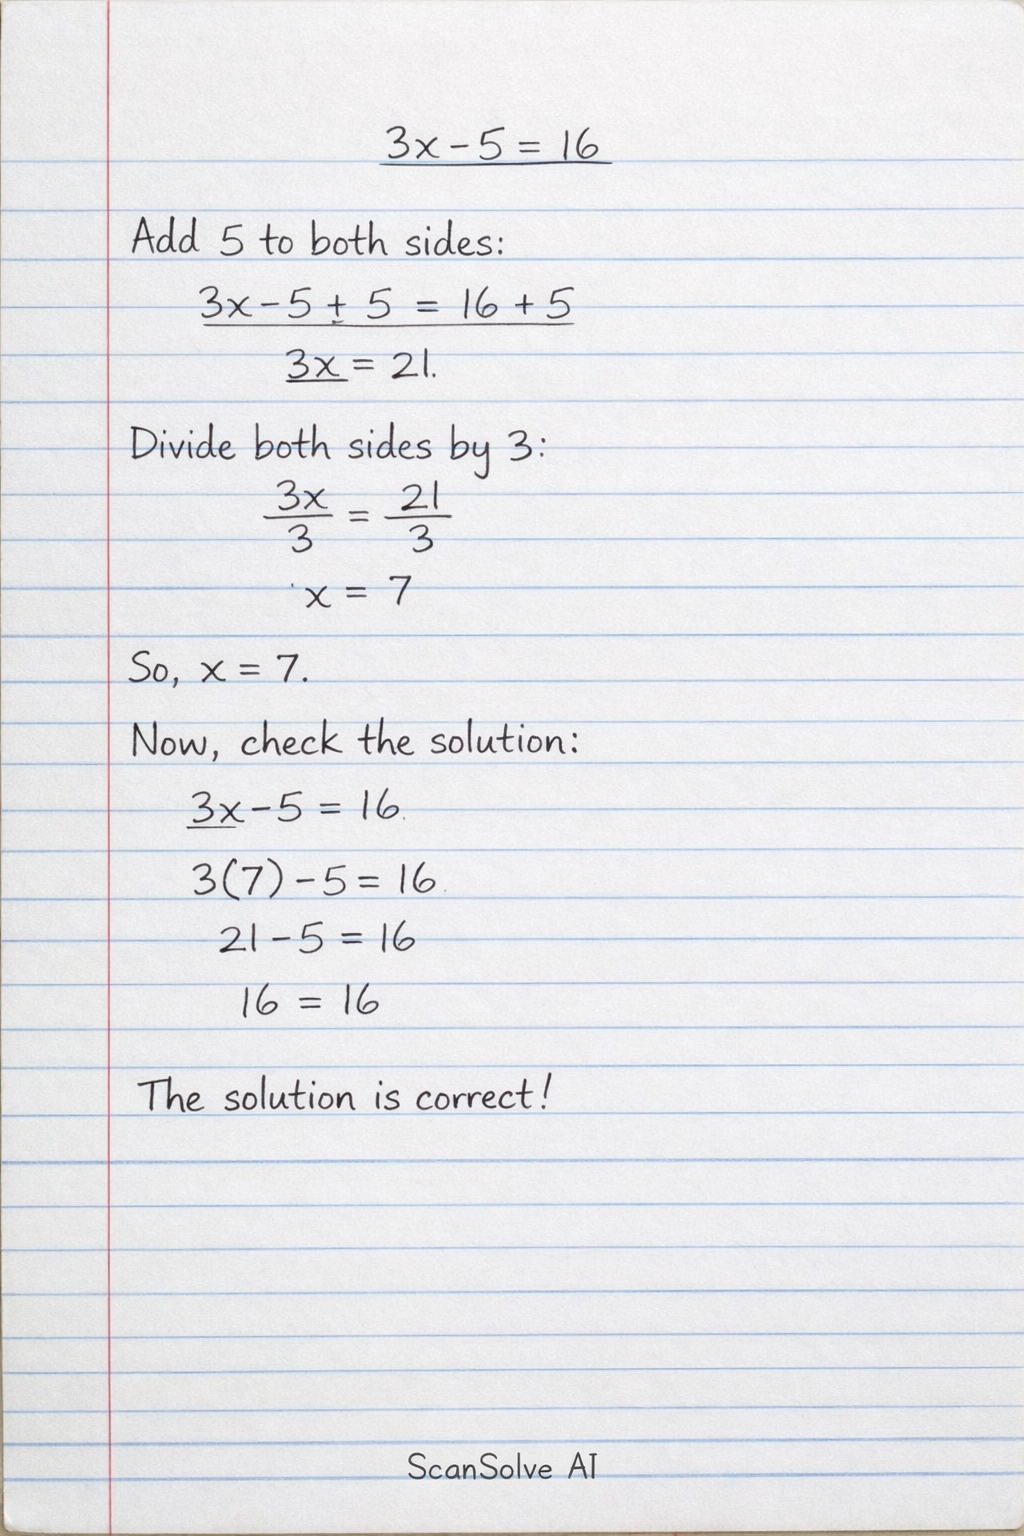 3x - 5 = 16
Add 5 to both sides:
3x - 5 + 5 = 16 + 5
3x = 21.
Divide both sides by 3:
3x/3 = 21/3
x = 7
So, x = 7.
Now, check the solution:
3x - 5 = 16.
3(7) - 5 = 16.
21 - 5 = 16
16 = 16
The solution is correct!
ScanSolve AI